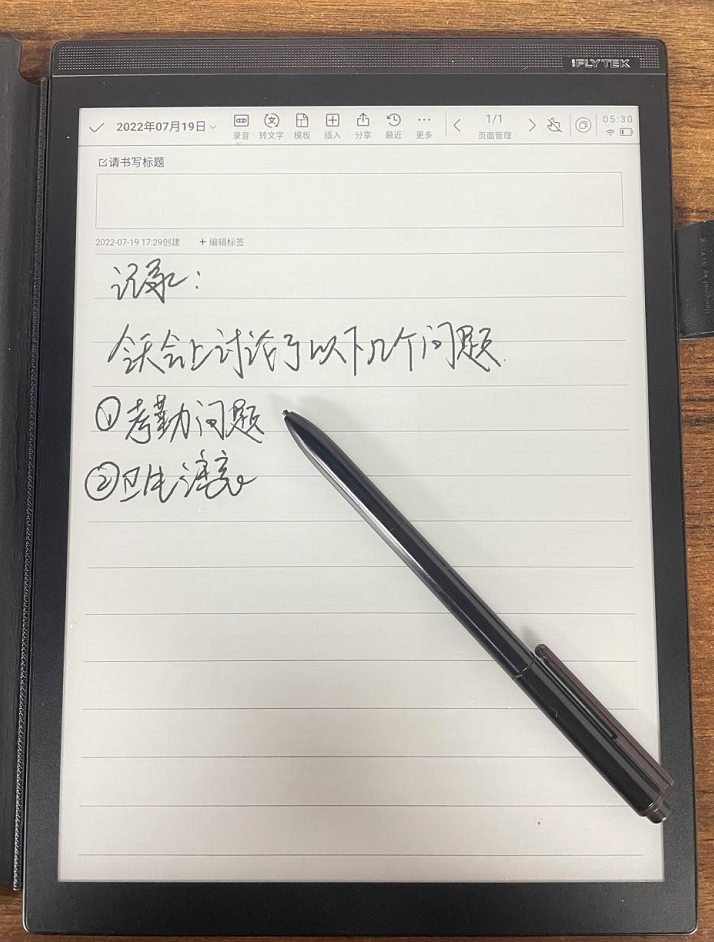 iFLYTEK
2022年07月19日
录音 转文字 模板 插入 分享 最近 更多
1/1
页面管理
05:30
请书写标题
2022-07-19 17:29创建 + 编辑标签
记录：
今天会上讨论了以下几个问题.
①考勤问题
②卫生